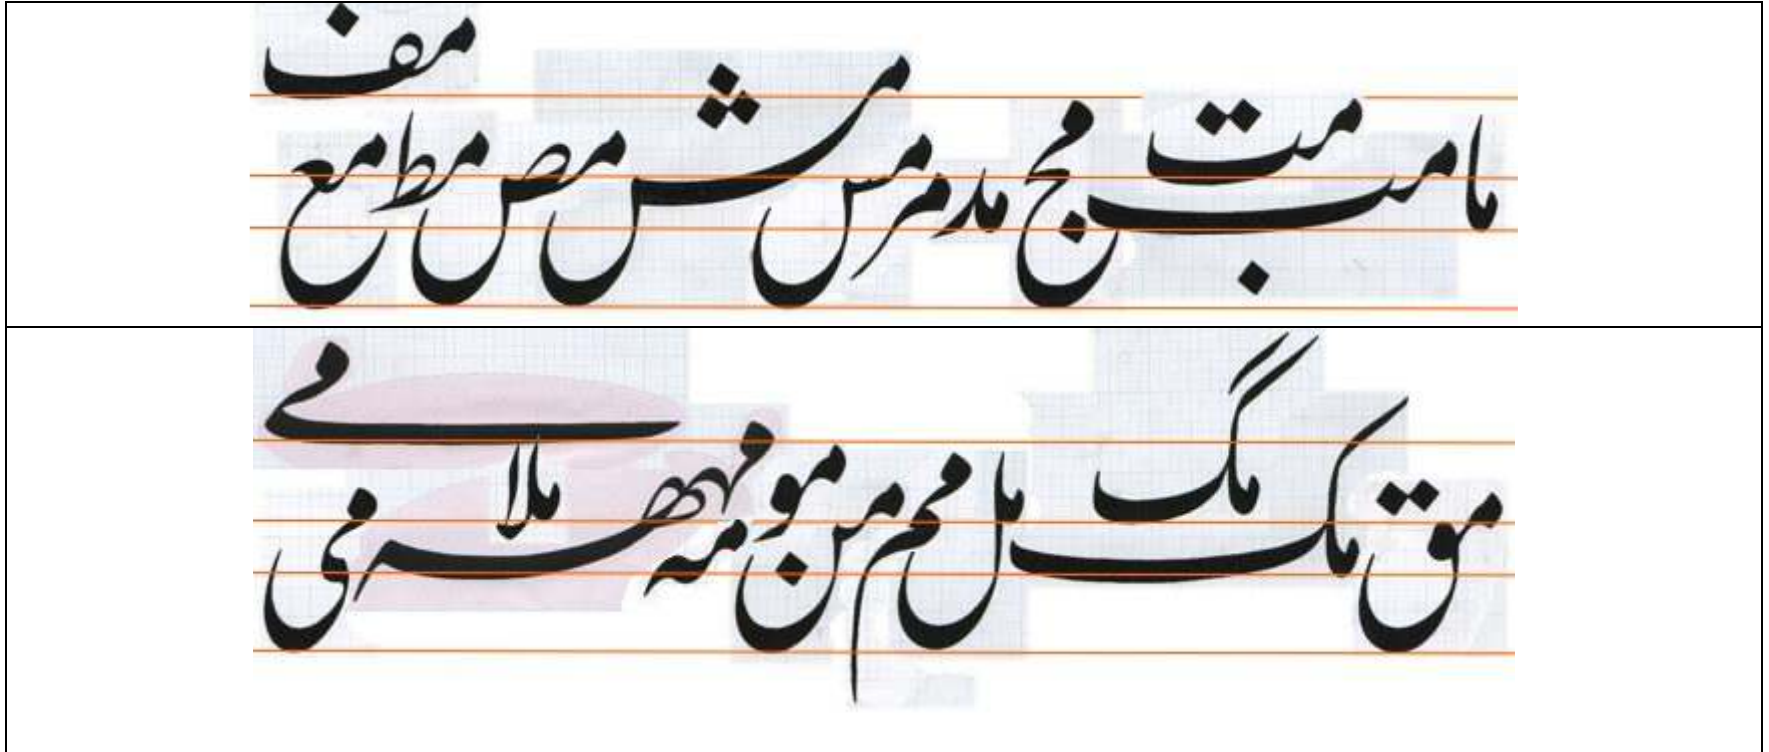 ما مب مت مج مد مر مس مش مص مط مع مف
مق مک مگ مل مم من مو مه مهه ملا می مے